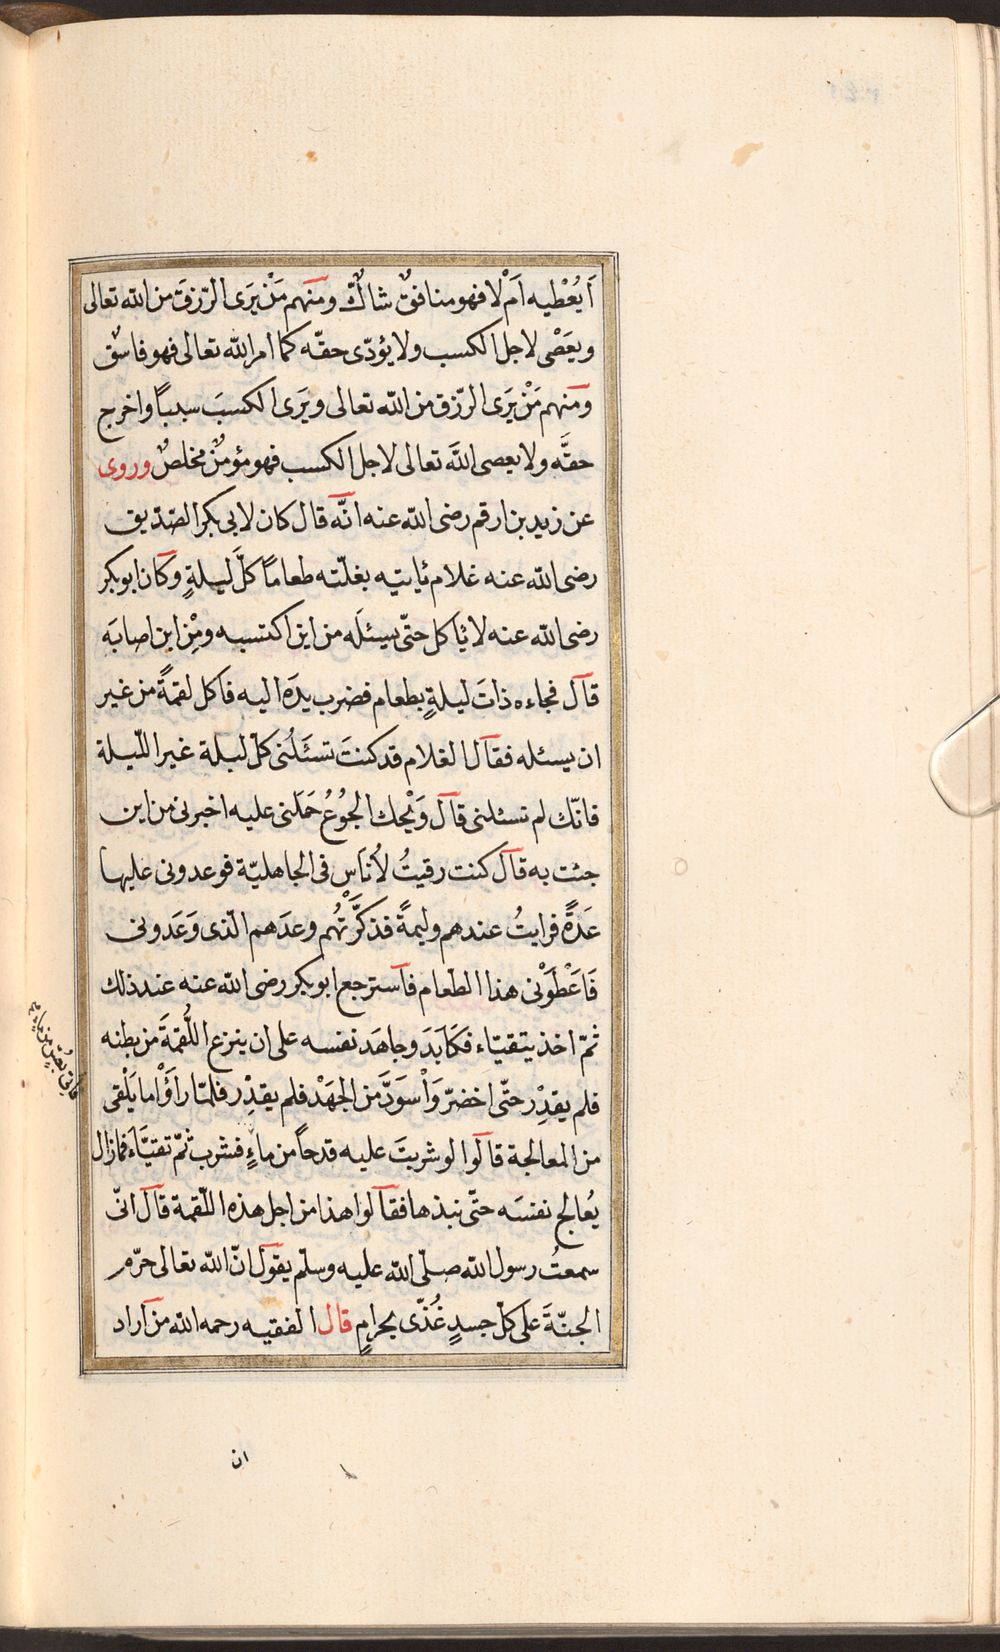 اَيُعْطيه اَمْ لا فهو منافقٌ شاكٌّ ومنهم مَنْ يَرَى الرّزقَ من الله تعالى
ويَعَصْى لاجل الكسب ولا يؤدّى حقّه كما امر الله تعالى فهو فاسقٌ
ومنهم مَنْ يَرَى الرّزق من الله تعالى ويَرَى الكسبَ سبباً واخرج
حقَّه ولا يعصى اللّهَ تعالى لاجل الكسب فهو مؤمنٌ مخلصٌ وروى
عن زيد بن ارقم رضى الله عنه انّه قال كان لابى بكر الصّدّيق
رضى الله عنه غلام ئاتيه بغلّته طعاماً كلَّ ليلةٍ وكان ابوبكر
رضى الله عنه لا ئاكل حتّى يسئلَه من اين اكتسبه ومِنْ اين اصابَه
قال فجاءه ذاتَ ليلةٍ بطعام فضرب يدَه اليه فاكل لقمةً من غير
ان يسئله فقال الغلام قد كنتَ تسئَلُنى كلّ ليلة غير اللّيلة
فانّك لم تسئلنى قال وَيْحك الجُوُعُ حَمَلنى عليه اخبرنى من اين
جئت به قال كنت رقيتُ لأناَسٍ فى الجاهليّة فوعدونى عليها
عَدَةً فرايتُ عندهم وليمةً فذكَّرْتُهم وعدَهم الّذى وَعَدونى
فَاَعْطَوْنى هذا الطعام فاسترجع ابوبكر رضى الله عنه عند ذلك
ثمّ اخذ يتقيّاء فكَابَدَ وجاهَد نفسه على ان ينزع اللُّقمةَ من بطنه
فلم يقدِْر حتّى اخضرّ وَاْسوَدَّ من الجَهَدْ فلم يقدِْر فلمّا رأَوْا ما يَلْقى
من المعالجة قالوا لو شربتَ عليه قدحاً من ماءٍ فشرب ثمّ تقيَّاَء فما زال
يُعالج نفسَه حتّى نبذها فقالوا هذا من اجل هذه اللّقمة قال انّى
سمعتُ رسول الله صلّى الله عليه وسلّم يقول انّ الله تعالى حرّم
الجنّةَ على كلّ جسدٍ غُذّى بحرامٍ قال الفقيه رحمه الله من اراد
ان